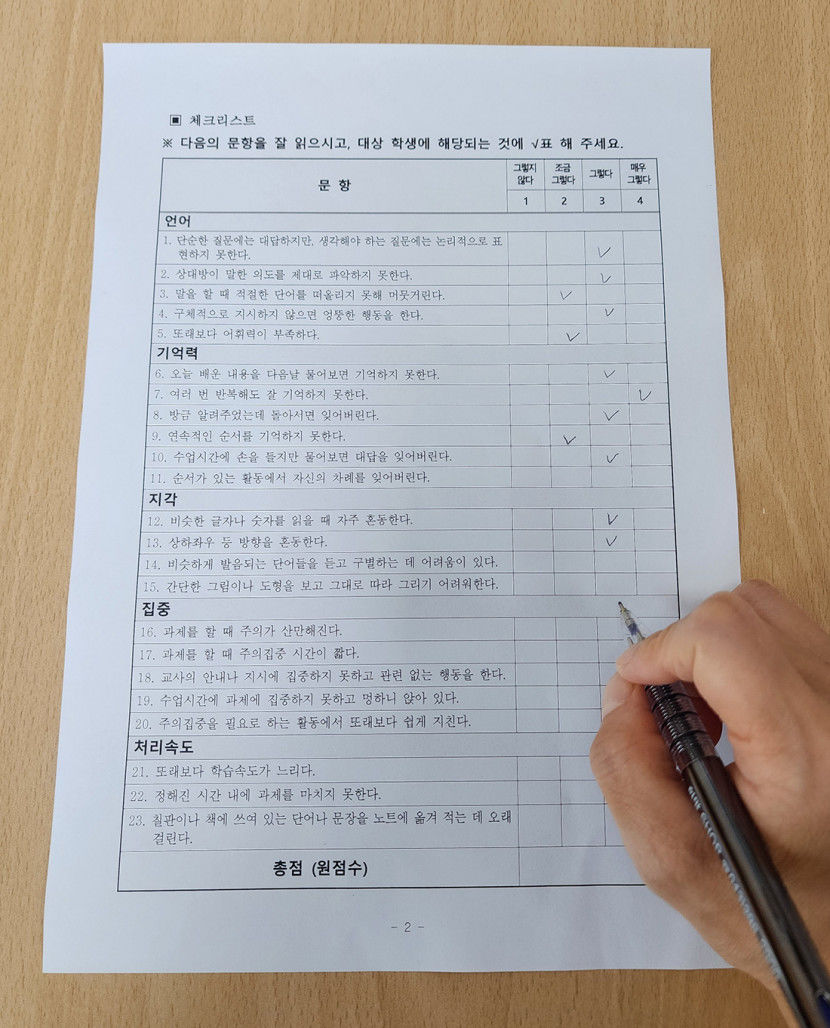 ▣ 체크리스트
※ 다음의 문항을 잘 읽으시고, 대상 학생에 해당되는 것에 √표 해 주세요.
문 항
그렇지 않다
조금 그렇다
그렇다
매우 그렇다
1 2 3 4
언어
1. 단순한 질문에는 대답하지만, 생각해야 하는 질문에는 논리적으로 표
현하지 못한다.
2. 상대방이 말한 의도를 제대로 파악하지 못한다.
3. 말을 할 때 적절한 단어를 떠올리지 못해 머뭇거린다.
4. 구체적으로 지시하지 않으면 엉뚱한 행동을 한다.
5. 또래보다 어휘력이 부족하다.
기억력
6. 오늘 배운 내용을 다음날 물어보면 기억하지 못한다.
7. 여러 번 반복해도 잘 기억하지 못한다.
8. 방금 알려주었는데 돌아서면 잊어버린다.
9. 연속적인 순서를 기억하지 못한다.
10. 수업시간에 손을 들지만 물어보면 대답을 잊어버린다.
11. 순서가 있는 활동에서 자신의 차례를 잊어버린다.
지각
12. 비슷한 글자나 숫자를 읽을 때 자주 혼동한다.
13. 상하좌우 등 방향을 혼동한다.
14. 비슷하게 발음되는 단어들을 듣고 구별하는 데 어려움이 있다.
15. 간단한 그림이나 도형을 보고 그대로 따라 그리기 어려워한다.
집중
16. 과제를 할 때 주의가 산만해진다.
17. 과제를 할 때 주의집중 시간이 짧다.
18. 교사의 안내나 지시에 집중하지 못하고 관련 없는 행동을 한다.
19. 수업시간에 과제에 집중하지 못하고 멍하니 앉아 있다.
20. 주의집중을 필요로 하는 활동에서 또래보다 쉽게 지친다.
처리속도
21. 또래보다 학습속도가 느리다.
22. 정해진 시간 내에 과제를 마치지 못한다.
23. 칠판이나 책에 쓰여 있는 단어나 문장을 노트에 옮겨 적는 데 오래
걸린다.
총점 (원점수)
- 2 -